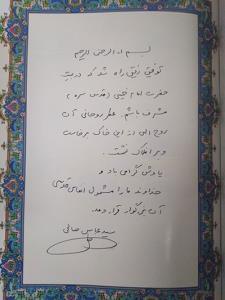 بسم الله الرحمن الرحیم
توفیق رفیق راه شد که در بیت
حضرت امام خمینی (قدس سره)
مشرف باشم. عطر روحانی آن
روح الهی از این خاک برخاست
و بر افلاک نشست.
یادش گرامی باد و
خداوند ما را مشمول انفاس قدسی
آن بزرگوار قرار دهد.
سید عباس صالحی